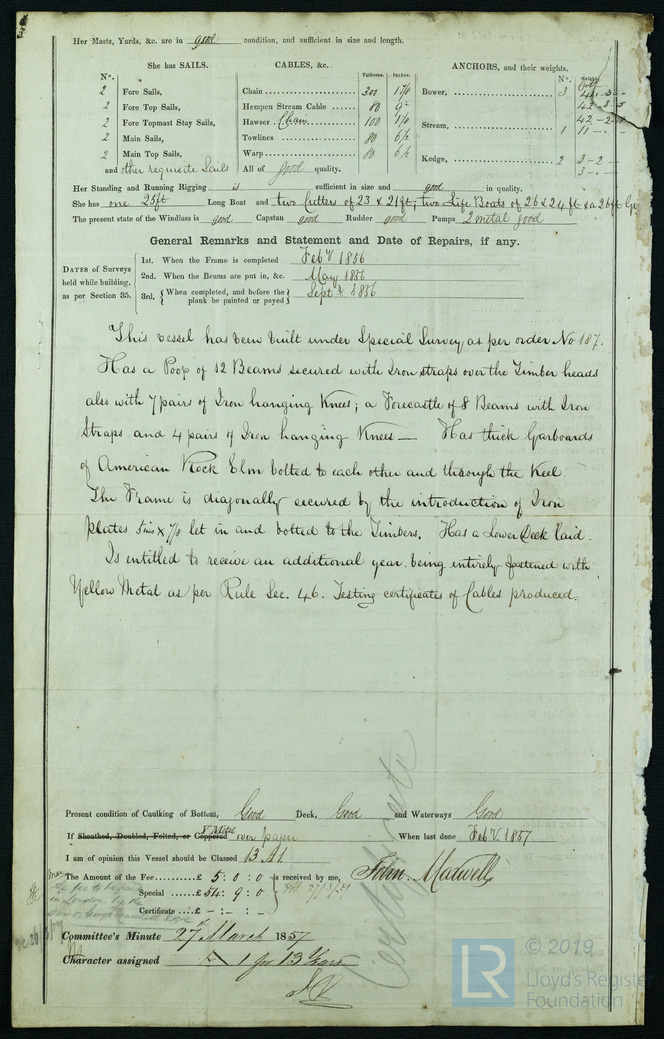 Her Masts, Yards, &c. are in good condition, and sufficient in size and length.
She has SAILS.
N°.
2 Fore Sails,
2 Fore Top Sails,
2 Fore Topmast Stay Sails,
2 Main Sails,
2 Main Top Sails,
and other requisite Sails
CABLES, &c.
Fathoms. Inches.
Chain 300
Hempen Stream Cable 80 9
Hawser Chain 100
Towlines 80 6½
Warp 80 6½
All of good quality.
ANCHORS, and their weights.
N°. Weight
Bower, 3
42 - 3 - 5
Stream, 1 11 - -
Kedge, 2 3 - 2 -
3 - -
Her Standing and Running Rigging is sufficient in size and good in quality.
She has one 25ft Long Boat and two Cutters of 23 & 21ft; two Life Boats of 26 & 24 ft & a 26ft Gig
The present state of the Windlass is good Capstan good Rudder good Pumps 2 metal good
General Remarks and Statement and Date of Repairs, if any.
DATES of Surveys held while building, as per Section 35.
1st. When the Frame is completed Feby 1856
2nd. When the Beams are put in, &c. May 1856
3rd, { When completed, and before the plank be painted or payed } Septr 1856
This vessel has been built under Special Survey, as per order No 187.
Has a Poop of 12 Beams secured with Iron straps over the Timber heads
also with 7 pairs of Iron hanging Knees; a Forecastle of 8 Beams with Iron
Straps and 4 pairs of Iron hanging Knees — Has thick Garboards
of American Rock Elm bolted to each other and through the Keel
The Frame is diagonally secured by the introduction of Iron
plates 5ins x 7/8 let in and bolted to the Timbers. Has a Lower Deck laid.
Is entitled to receive an additional year, being entirely fastened with
Yellow Metal as per Rule Sec. 46. Testing certificates of Cables produced.
Present condition of Caulking of Bottom, Good Deck, Good and Waterways Good
If Sheathed, Doubled, Felted, or Coppered Y Metal over paper When last done Feby 1857
I am of opinion this Vessel should be Classed 13 A1.
The Amount of the Fee £ 5 : 0 : 0 is received by me, John Maxwell
Special £ 54 : 9 : 0
Certificate £ - : - : -
Committee's Minute 27th March 1857
Character assigned A 1 for 13 Years
Certificate
© 2019
LR
Lloyd's Register
Foundation